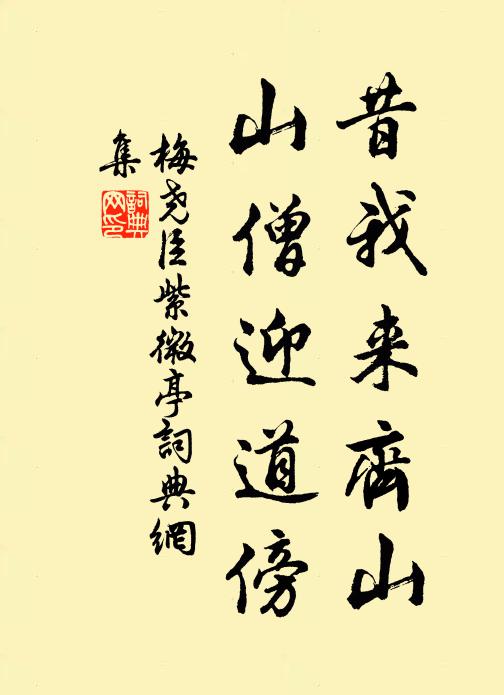 昔我来齊山
山僧迎道傍
梅尧臣紫微亭詞典網
集
詞典
网印